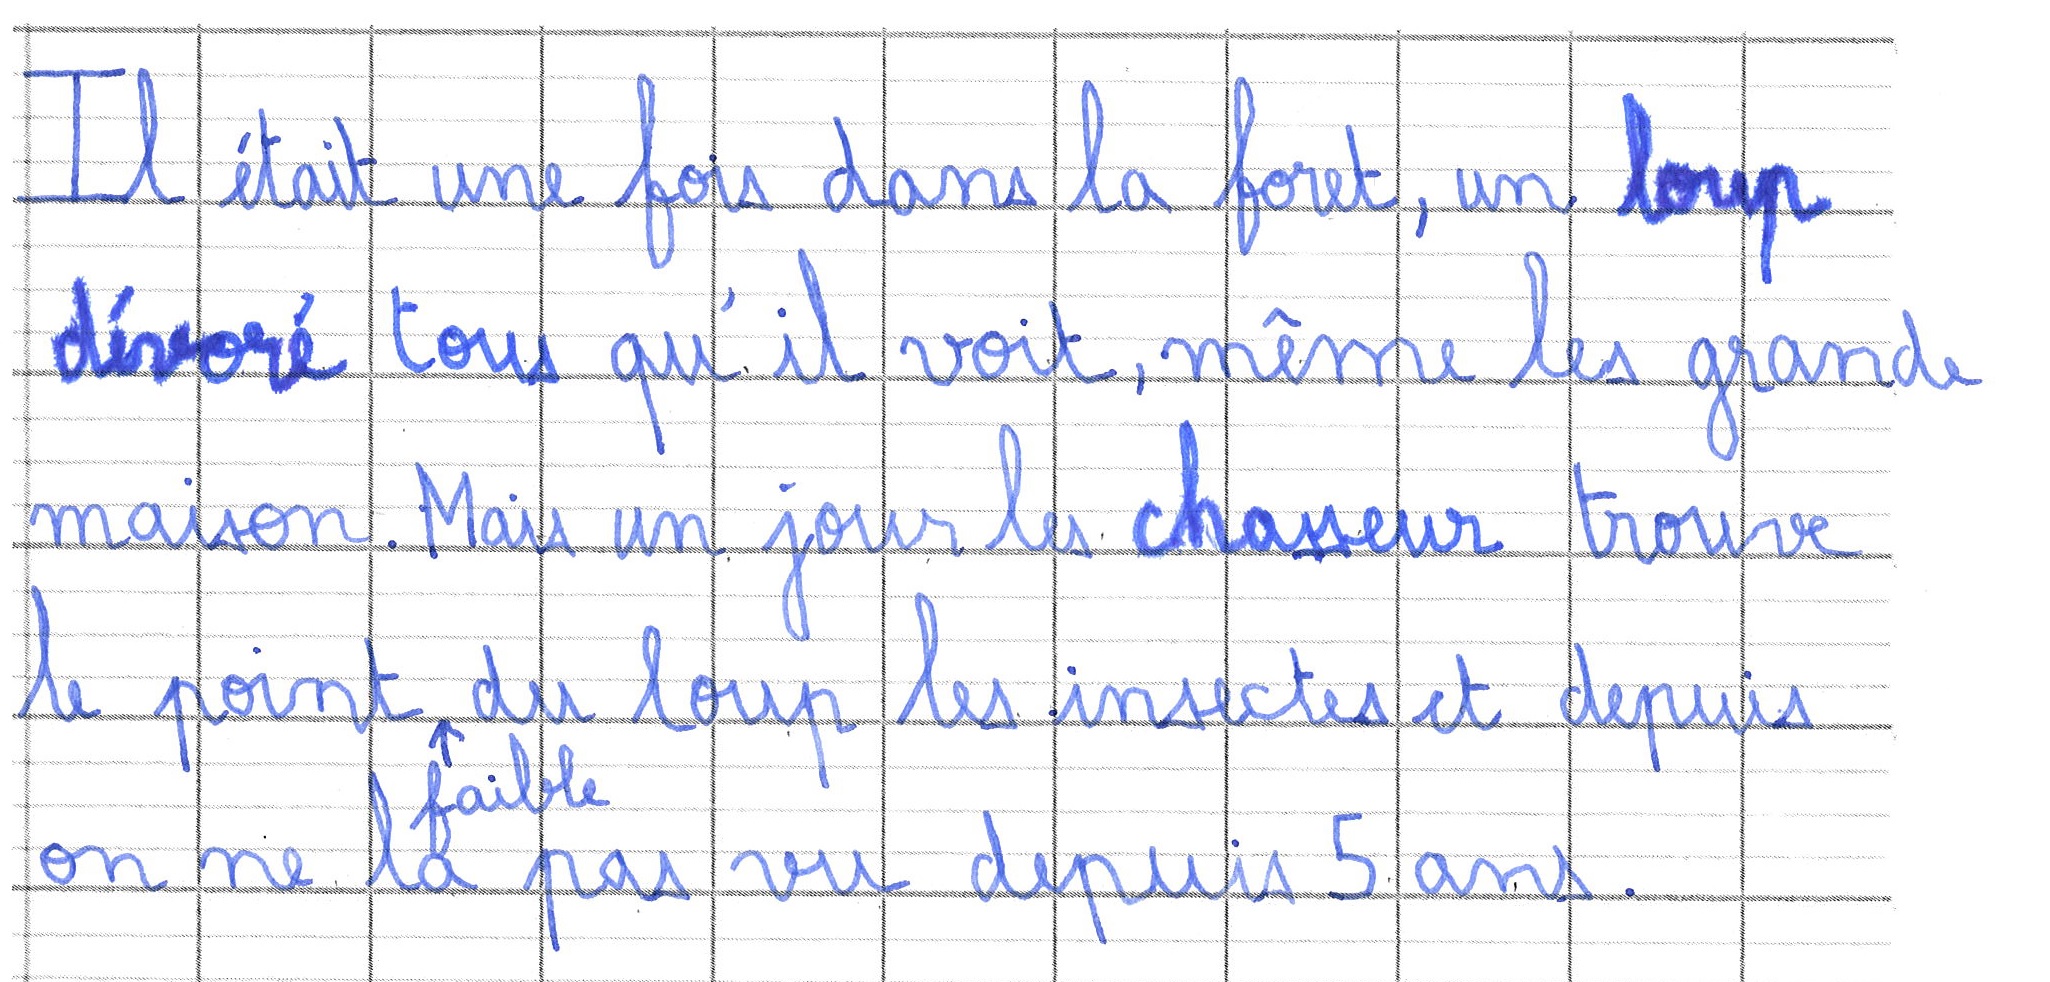 Il était une fois dans la foret, un loup
dévoré tous qu'il voit, même les grande
maison. Mais un jour les chasseur trouve
le point du loup les insectes et depuis
faible
on ne la pas vu depuis 5 ans.